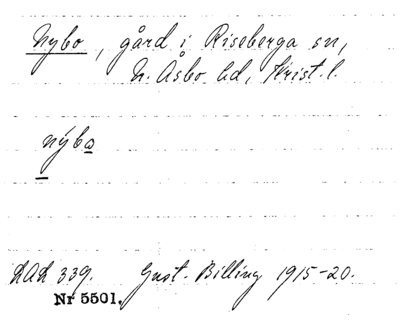 Nybo, gård i Riseberga sn,
N. Åsbo hd, Krist. l.
nýbo
LAL 339. Gust. Billing 1915-20.
Nr 5501.